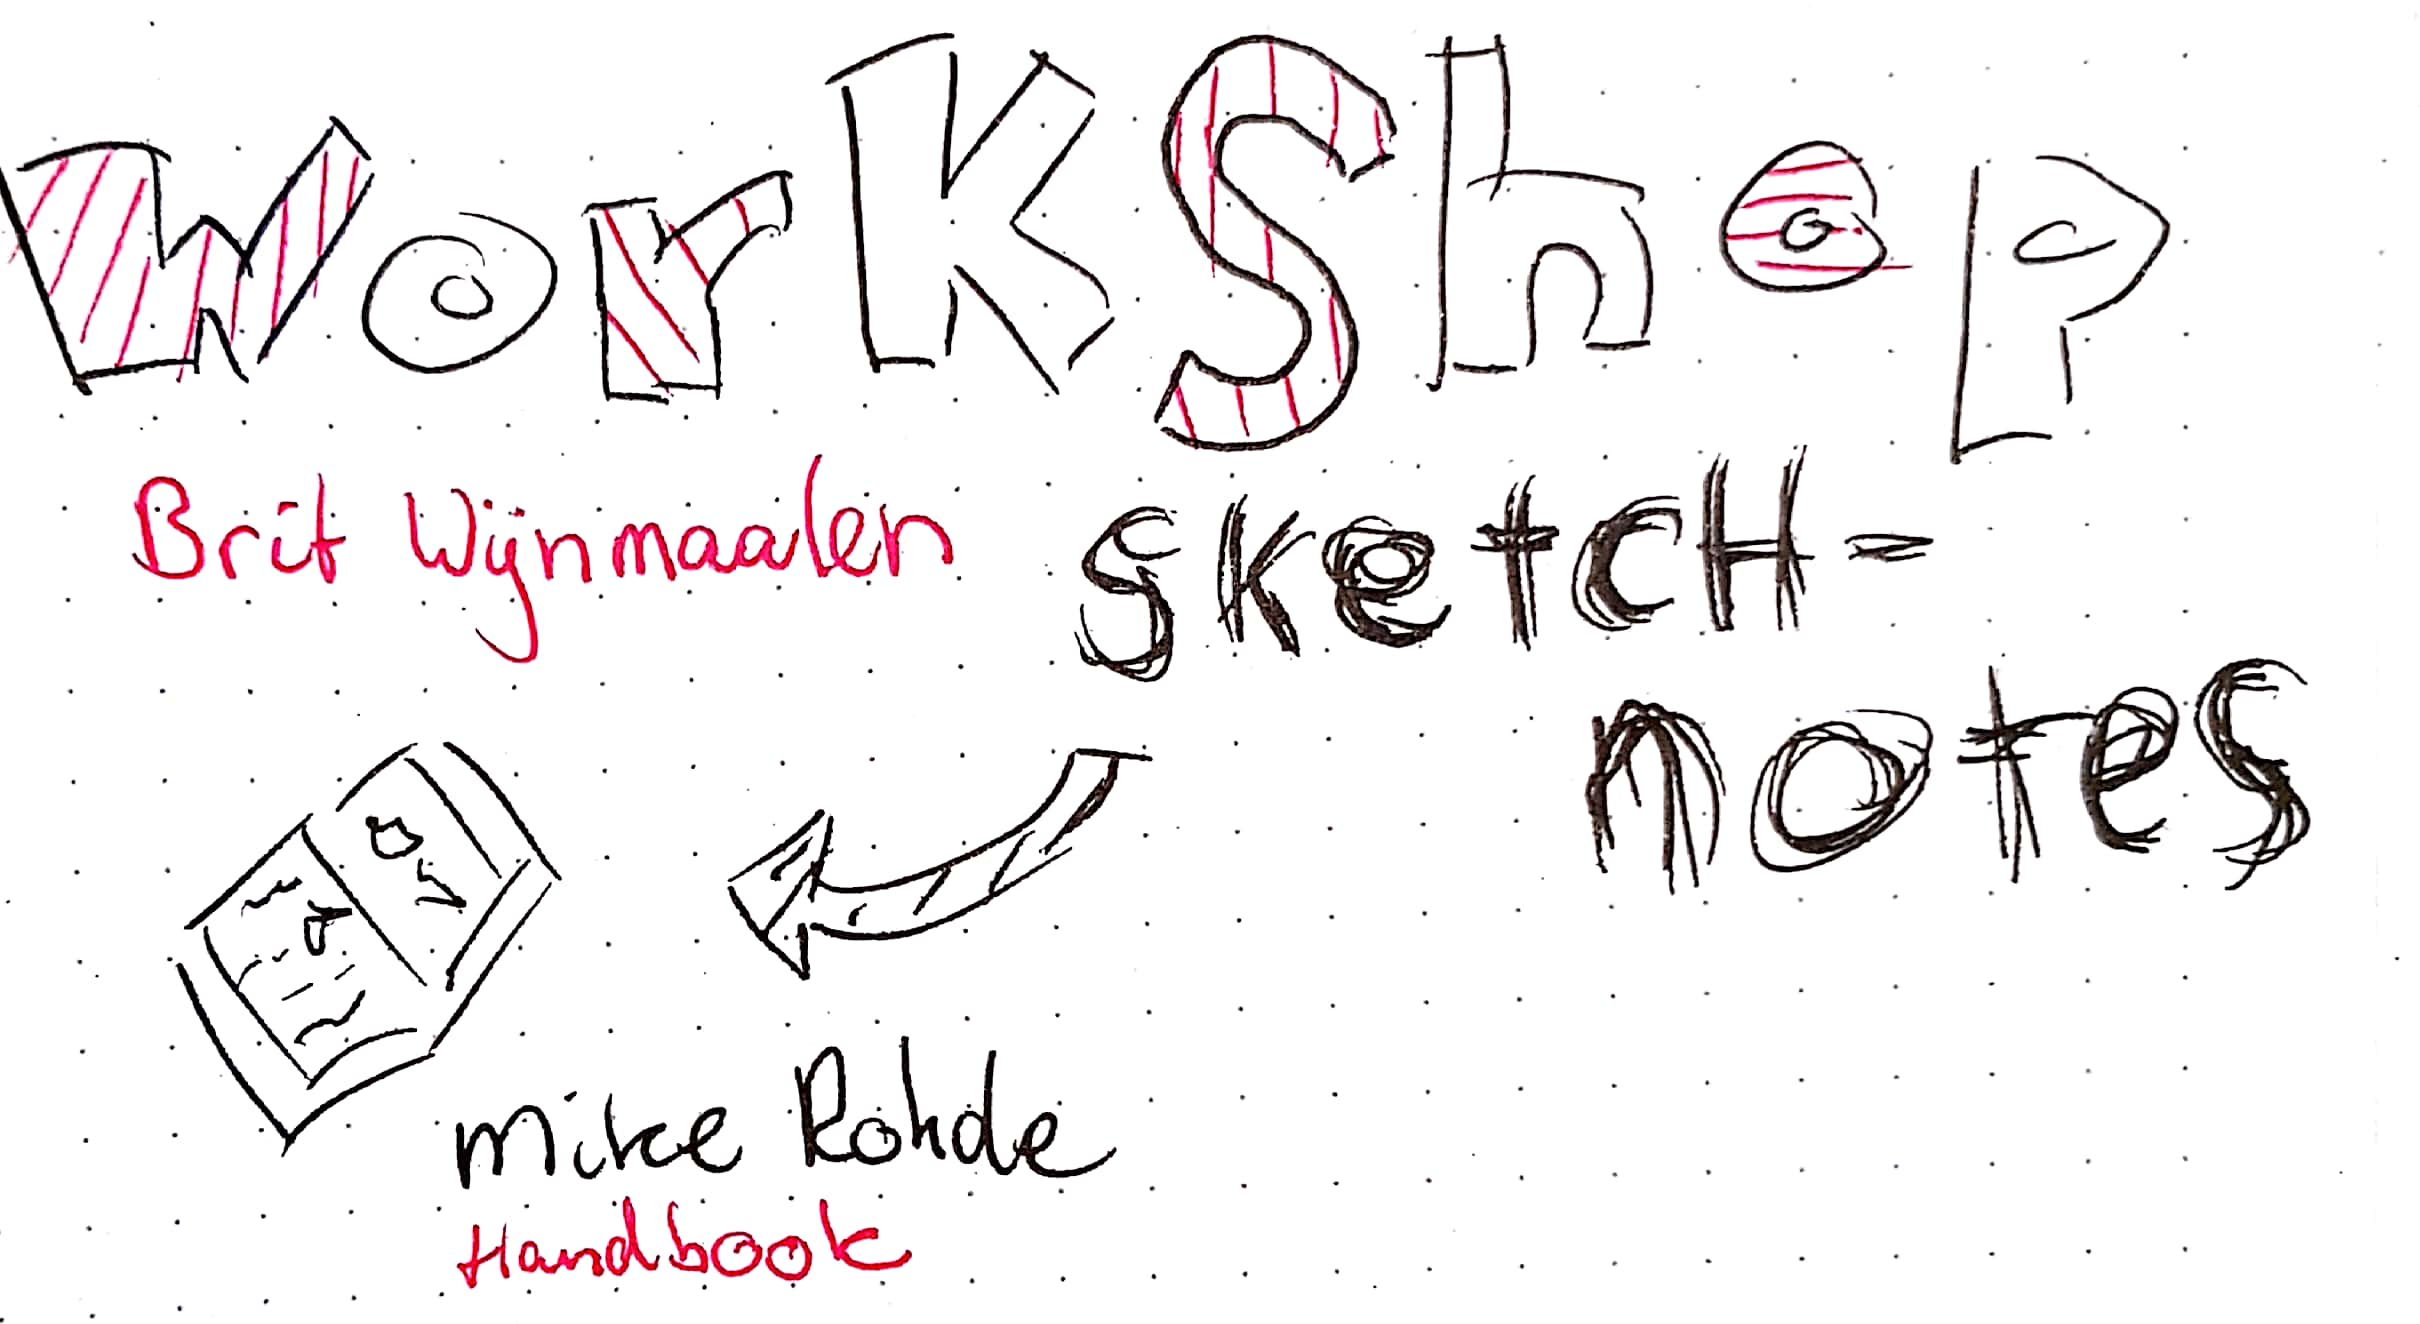 WorKShop
Brit Wijnmaalen
sketcH-
notes
Mike Rohde
Handbook